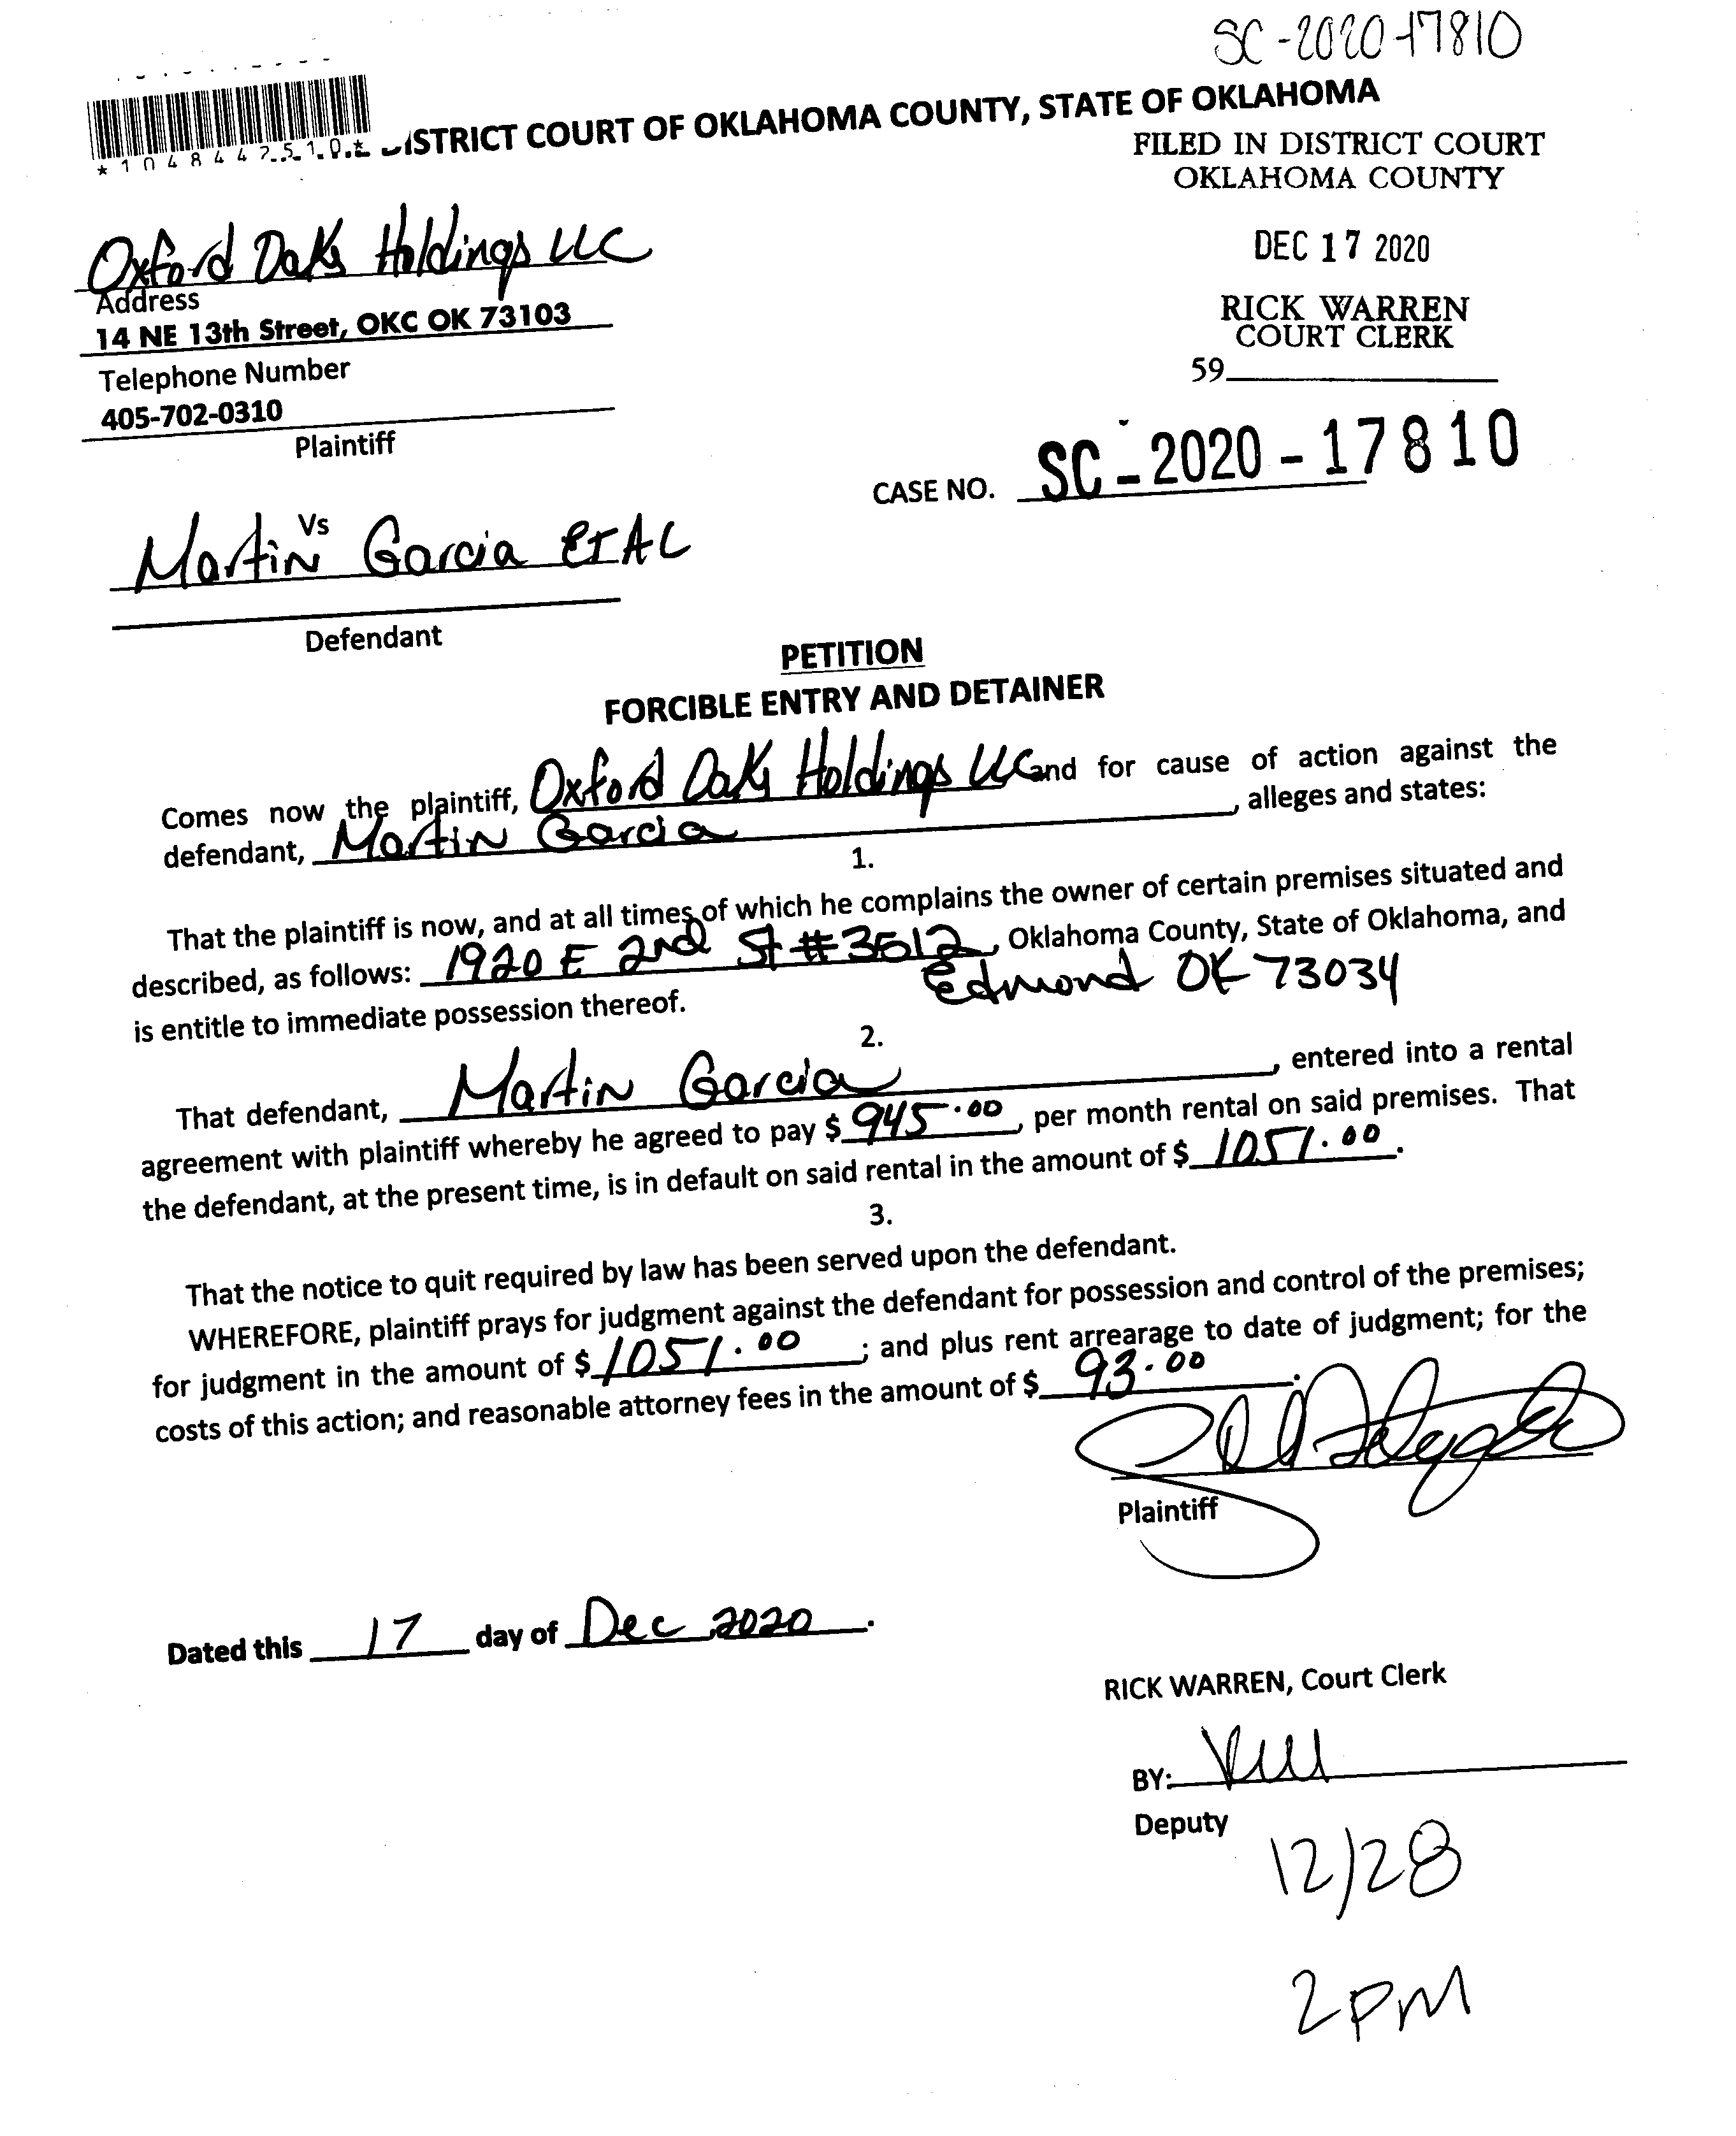 SC-2020-17810
ISTRICT COURT OF OKLAHOMA COUNTY, STATE OF OKLAHOMA
*1048447510*
FILED IN DISTRICT COURT
OKLAHOMA COUNTY
DEC 17 2020
RICK WARREN
COURT CLERK
59
Oxford Oaks Holdings LLC
Address
14 NE 13th Street, OKC OK 73103
Telephone Number
405-702-0310
Plaintiff
CASE NO. SC-2020-17810
Vs
Martin Garcia ETAL
Defendant
PETITION
FORCIBLE ENTRY AND DETAINER
Comes now the plaintiff, Oxford Oaks Holdings LLC and for cause of action against the
defendant, Martin Garcia, alleges and states:
1.
That the plaintiff is now, and at all times of which he complains the owner of certain premises situated and
described, as follows: 1920 E 2nd St #3612, Oklahoma County, State of Oklahoma, and
Edmond OK 73034
is entitle to immediate possession thereof.
2.
That defendant, Martin Garcia, entered into a rental
agreement with plaintiff whereby he agreed to pay $ 945.00, per month rental on said premises. That
the defendant, at the present time, is in default on said rental in the amount of $ 1051.00.
3.
That the notice to quit required by law has been served upon the defendant.
WHEREFORE, plaintiff prays for judgment against the defendant for possession and control of the premises;
for judgment in the amount of $ 1051.00; and plus rent arrearage to date of judgment; for the
costs of this action; and reasonable attorney fees in the amount of $ 93.00.
Plaintiff
Dated this 17 day of Dec 2020.
RICK WARREN, Court Clerk
BY:
Deputy
12/28
2PM